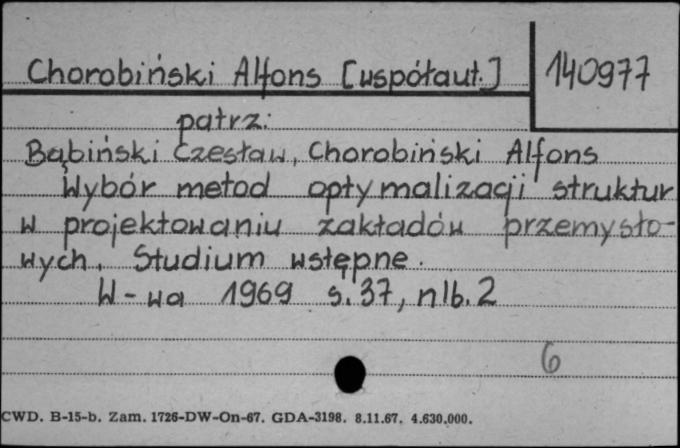 Chorobiński Alfons [współaut.] 140977
patrz:
Bąbiński Czesław, Chorobiński Alfons
Wybór metod optymalizacji struktur
w projektowaniu zakładów przemysło-
wych. Studium wstępne.
W-wa 1969 s. 37, nlb. 2
6
CWD. B-15-b. Zam. 1726-DW-On-67. GDA-3198. 8.11.67. 4.630.000.